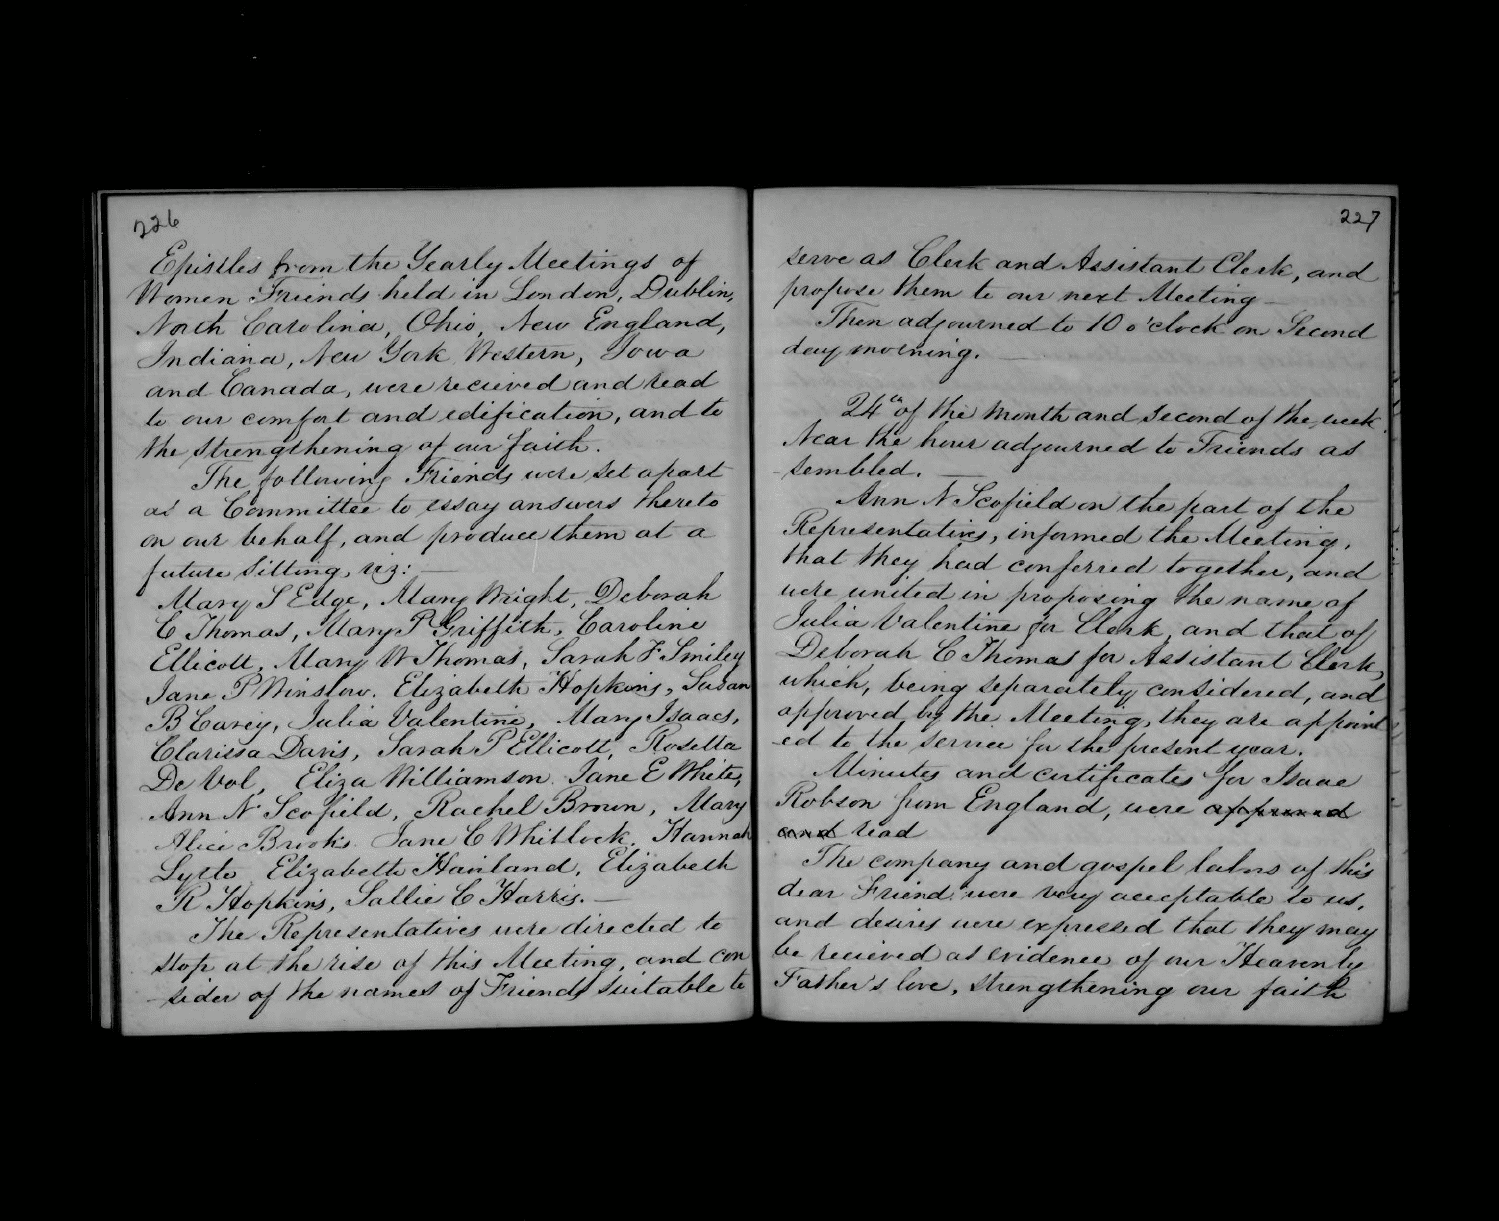 226
Epistles from the Yearly Meetings of
Women Friends held in London, Dublin,
North Carolina, Ohio, New England,
Indiana, New York Western, Iowa
and Canada, were recieved and read
to our comfort and edification, and to
the strengthening of our faith.
The following Friends were set apart
as a Committee to essay answers thereto
on our behalf, and produce them at a
future sitting, viz: —
Mary S Edge, Mary Wright, Deborah
C Thomas, Mary P Griffith, Caroline
Ellicott, Mary W Thomas, Sarah F Smiley
Jane P Winslow. Elizabeth Hopkins, Susan
B Carey, Julia Valentine, Mary Isaacs,
Clarissa Davis, Sarah P Ellicott, Rosetta
De Vol, Eliza Williamson. Jane E White,
Ann N Scofield, Rachel Brown, Mary
Alice Brooks. Jane C Whitlock. Hannah
Lytle Elizabeth Haviland, Elizabeth
R Hopkins, Sallie C Harris. —
The Representatives were directed to
stop at the rise of this Meeting, and con
-sider of the names of Friends suitable to
227
serve as Clerk and Assistant Clerk, and
propose them to our next Meeting —
Then adjourned to 10 o'clock on Second
day morning. —
24th of the month and second of the week
Near the hour adjourned to Friends as
-sembled. —
Ann N Scofield on the part of the
Representatives, informed the Meeting,
that they had conferred together, and
were united in proposing the name of
Julia Valentine for Clerk, and that of
Deborah C Thomas for Assistant Clerk,
which, being separately considered, and
approved by the Meeting, they are appoint
-ed to the service for the present year.
Minutes and certificates for Isaac
Robson from England, were approved
and read
The company and gospel labors of this
dear Friend were very acceptable to us,
and desires were expressed that they may
be recieved as evidence of our Heavenly
Father's love, strengthening our faith